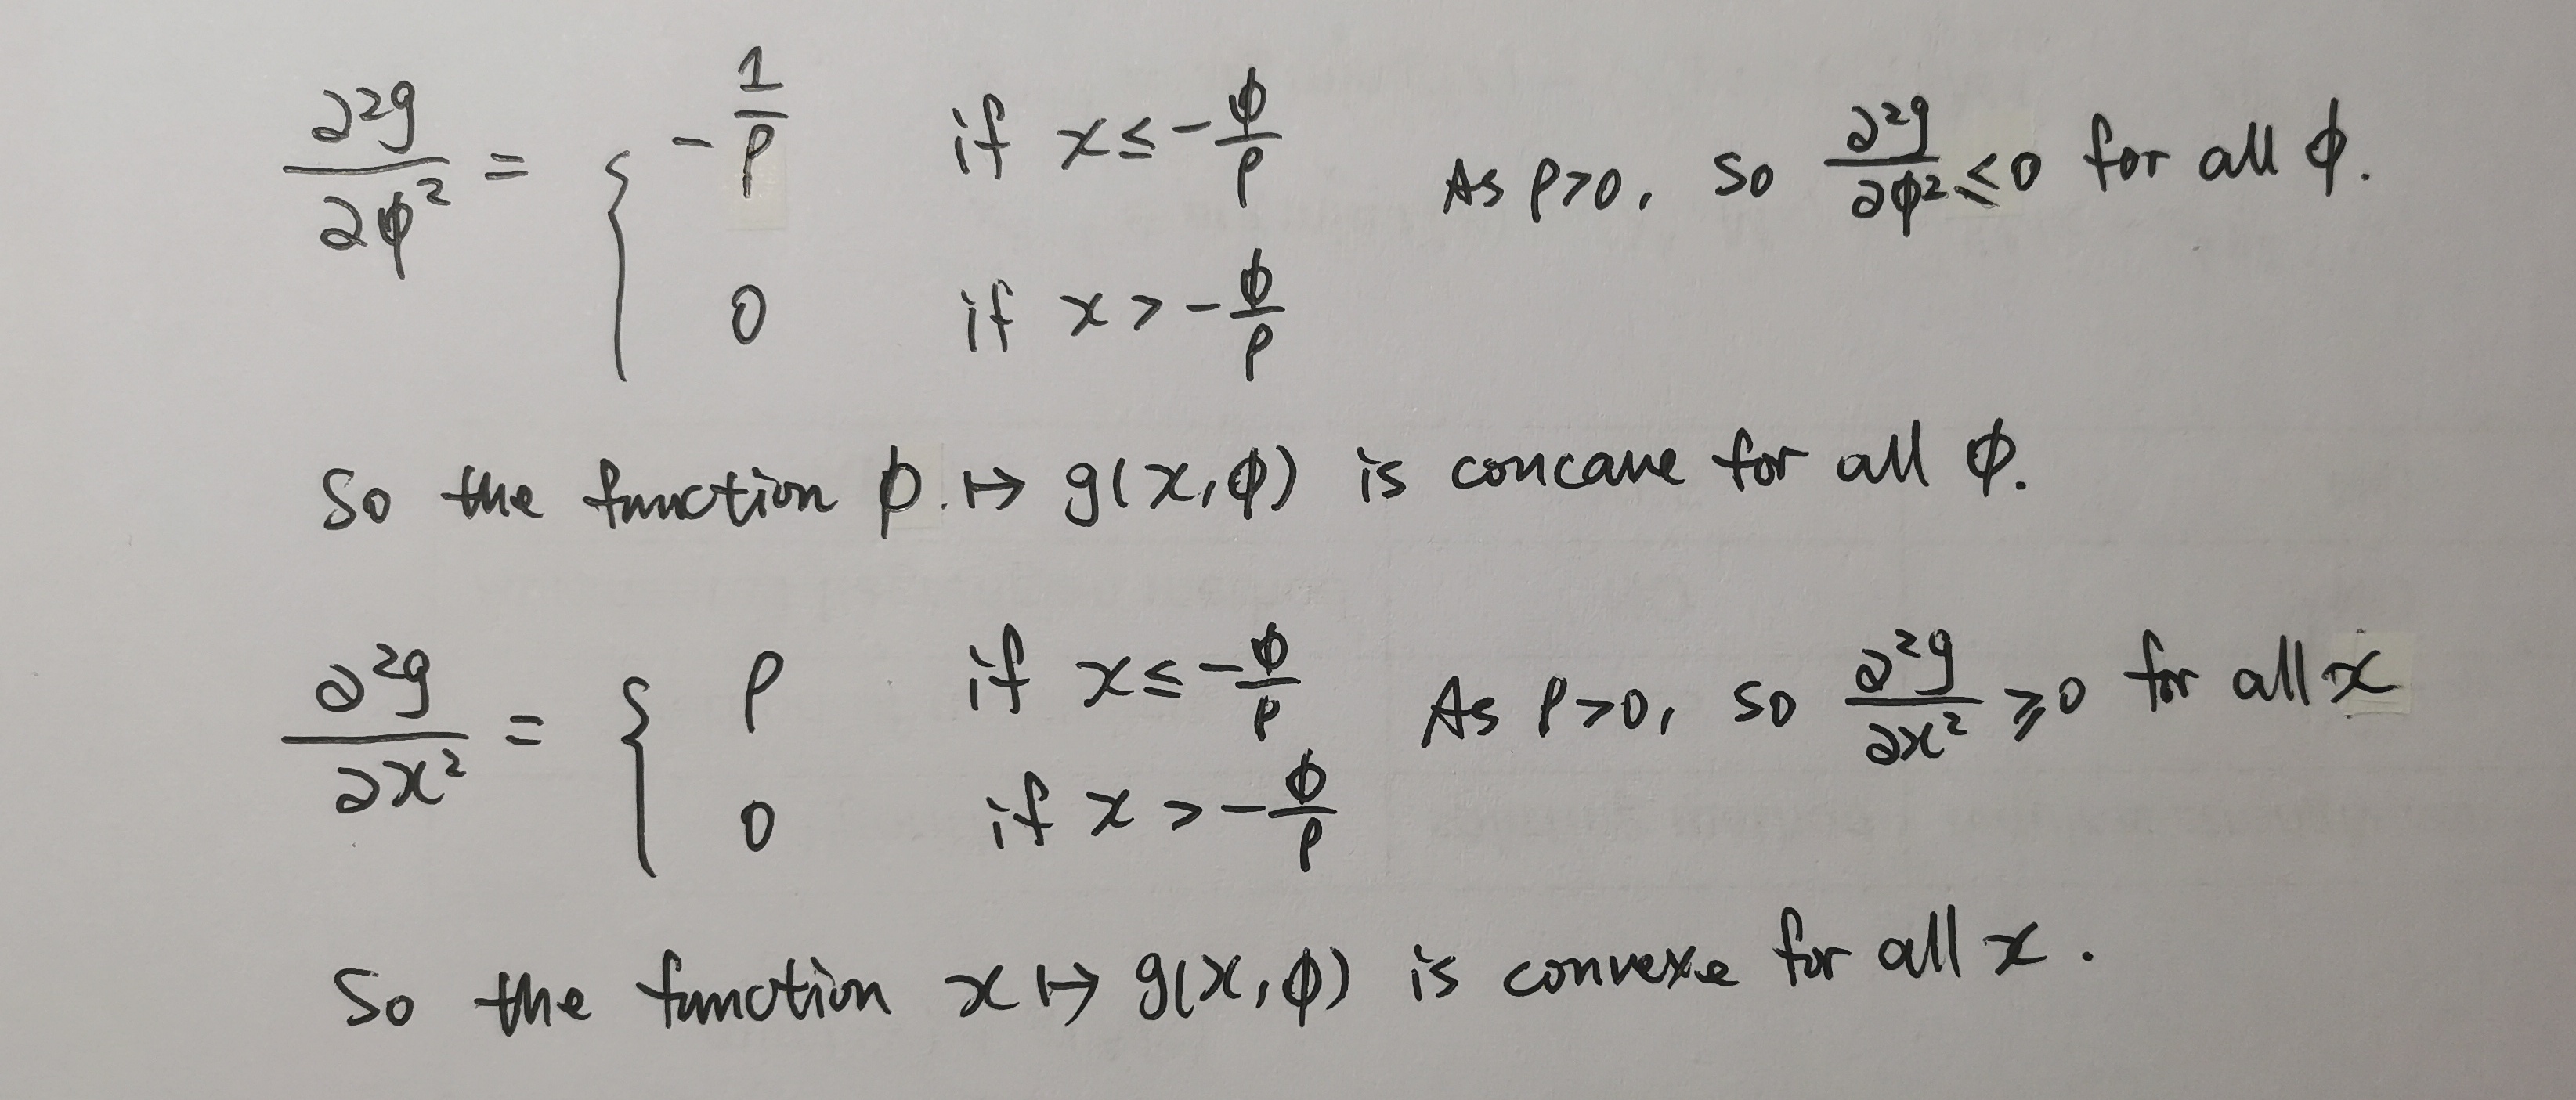 ∂²g/∂φ² = { -1/ρ if x ≤ -φ/ρ As ρ>0, so ∂²g/∂φ² ≤ 0 for all φ.
0 if x > -φ/ρ
So the function φ ↦ g(x,φ) is concave for all φ.
∂²g/∂x² = { ρ if x ≤ -φ/ρ As ρ>0, so ∂²g/∂x² ≥ 0 for all x
0 if x > -φ/ρ
So the function x ↦ g(x,φ) is convexe for all x.